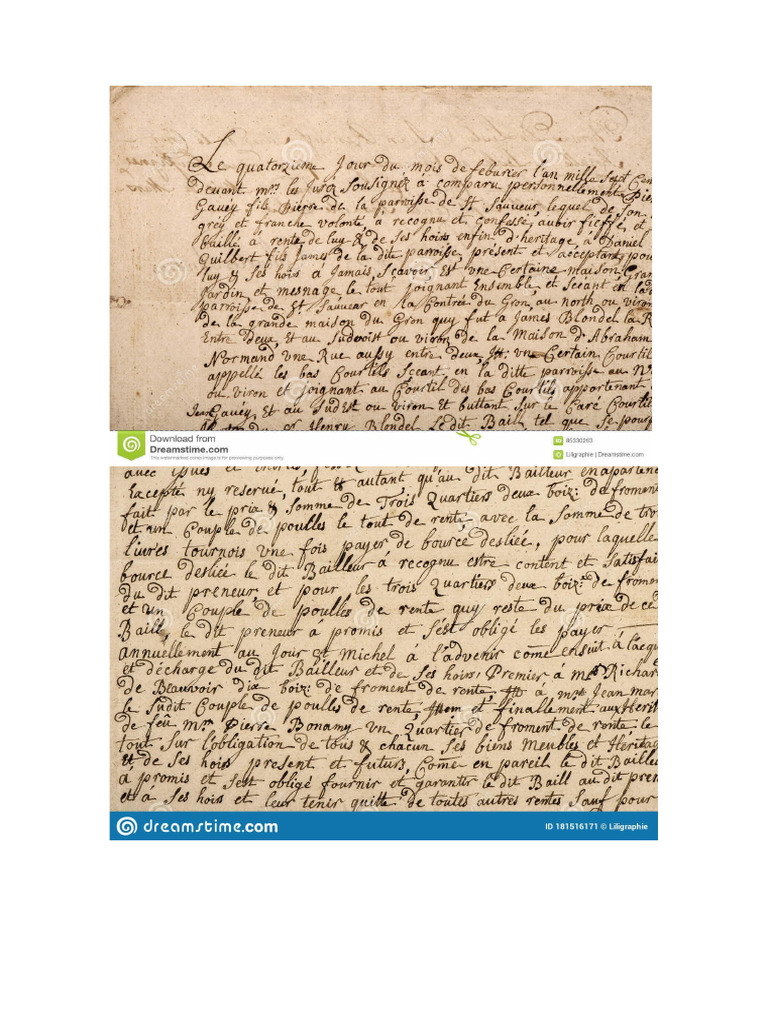 Le quatorzieme Jour du mois de feburier l'an mille Sept Cen
devant mrs les Jurez Sousignéz a comparu personnellement Pie
Gavey fils Pierre de la parroisse de St Sauveur, lequel de Son
grey et franche volonté a recognu et Confessé avoir fieffé, et
baillé à rente de luy & de Ses hoirs enfin d'heritage, à Daniel
Guilbert fils James de la dit parroisse present et acceptant pou
luy & Ses hoirs à Jamais, Sçavoir Est une Certaine maison Gran
Jardin et mesnage le tout joignant Ensemble et Sceant en lad
parroisse de St Sauveur en la Contrée du Gron au north ou viron
de la grande maison du Gron quy fut à James Blondel la R
Entre deux, et au Sudoist ou viron de la Maison d'Abraham
Normand une Rue aussy entre deux It: un Certain Courtil
appellé les bas Courtils Sceant en la ditte parroisse au N
ou viron et joignant au Courtil des bas Courtils appartenant
Jean Gavey Et au Sudest ou viron Et buttant Sur le Caré Courtil
Henry Blondel Ledit Bail tel que Se pour
Download from
Dreamstime.com
This watermarked comp image is for previewing purposes only.
85330263
Liligraphie | Dreamstime.com
avec
Excepté ny reservé, tout & autant qu'au dit Bailleur en apartene
fait par le prix & Somme de Trois Quartiers deux boiz: de froment
et un Couple de poulles le tout de rente, avec la Somme de tro
livres tournois une fois payer de bource desliée, pour laquelle
bource desliée le dit Bailleur à recognu estre content et Satisfai
du dit preneur, et pour les trois Quartiers deux boiz: de fromen
et un Couple de poulles de rente quy reste du prix de ce
Baill, le dit preneur à promis et s'est obligé les payer
annuellement au Jour St Michel à l'advenir come ensuit à l'acq
et décharge du dit Bailleur et de Ses hoirs: Premier, à mr Richar
de Beauvoir dix boiz: de froment de rente, It à mr Jean mar
le Sudit Couple de poulles de rente Item et finalement aux Herit
de feû mr Pierre Bonamy un Quartier de froment de rente le
tout Sur l'obligation de tous & chacun Ses biens Meubles et Heritag
et de Ses hoirs present et futurs, Come en pareil le dit Bailleu
à promis et s'est obligé fournir et garantir le dit Baill au dit pren
et à Ses hoirs et leur tenir quitte de toutes autres rentes, Sauf pour
dreamstime.com
ID 181516171 © Liligraphie